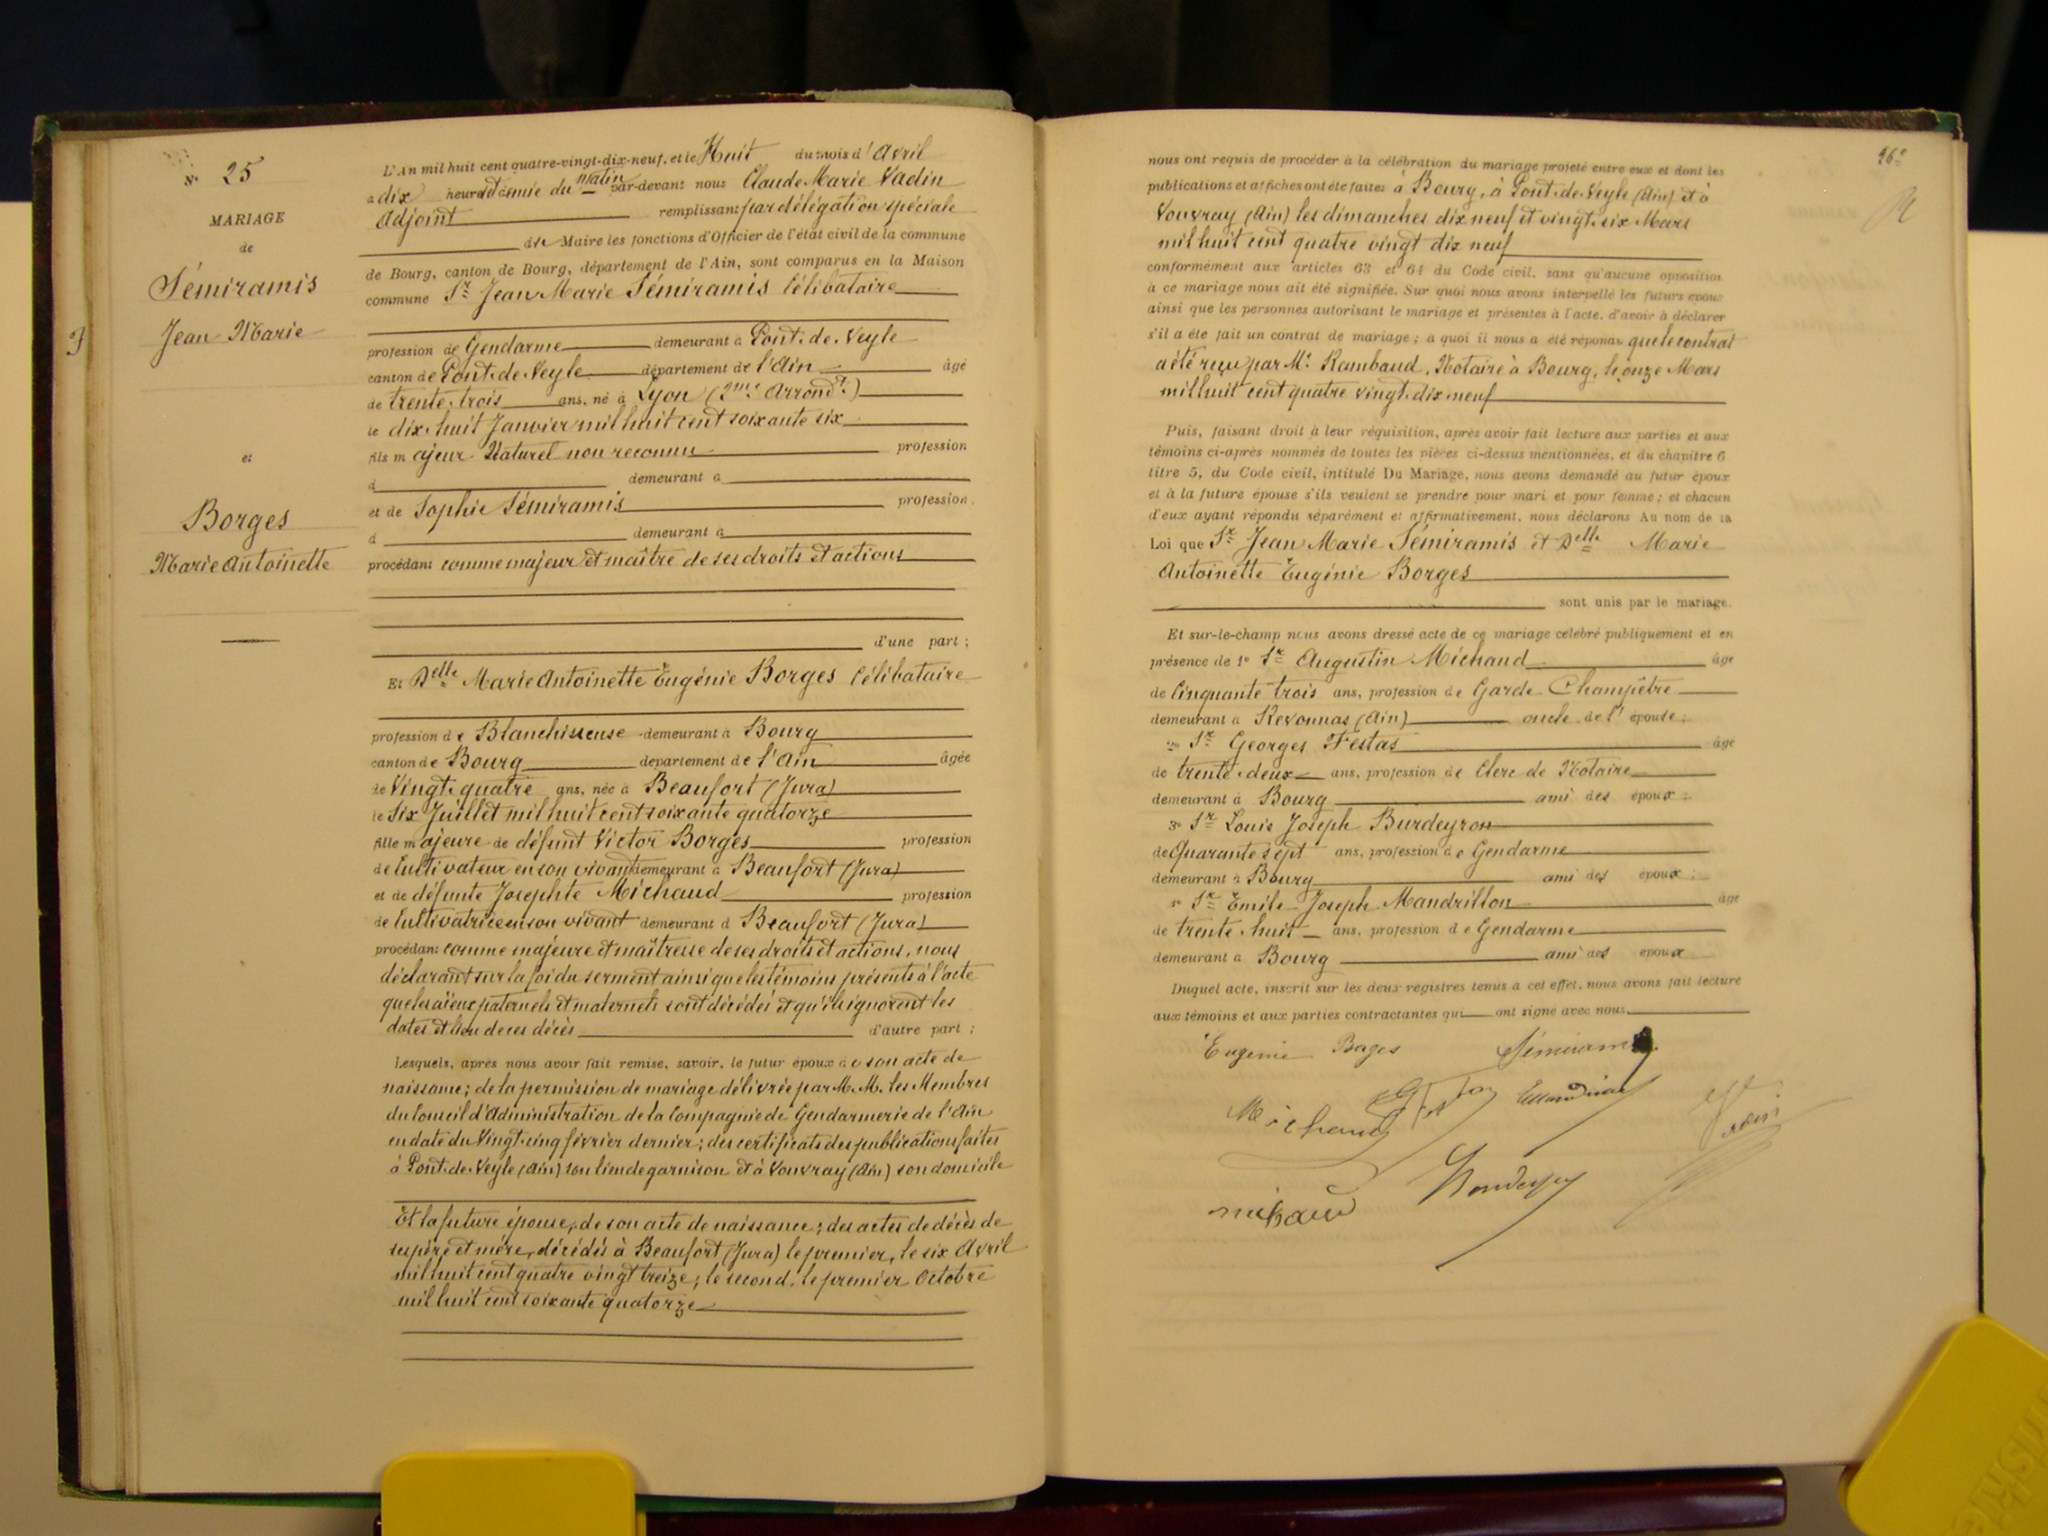 N° 25
MARIAGE
de
Sémiramis
Jean Marie
et
Borges
Marie Antoinette
L'An mil huit cent quatre-vingt-dix-neuf, et le Huit du mois d'Avril
à dix heures et demie du matin par-devant nous Claude Marie Vadin
Adjoint remplissant par délégation spéciale
du Maire les fonctions d'Officier de l'état civil de la commune
de Bourg, canton de Bourg, département de l'Ain, sont comparus en la Maison
commune Sr Jean Marie Sémiramis Célibataire
profession de Gendarme demeurant à Pont-de-Veyle
canton de Pont-de-Veyle département de l'Ain âgé
de trente-trois ans, né à Lyon (2me Arrondt)
le dix-huit Janvier mil huit cent soixante six
fils majeur Naturel non reconnu profession
d demeurant à
et de Sophie Sémiramis profession
d demeurant à
procédant comme majeur et maître de ses droits et actions
d'une part ;
Et Delle Marie Antoinette Eugénie Borges Célibataire
profession de Blanchisseuse demeurant à Bourg
canton de Bourg département de l'Ain âgée
de Vingt-quatre ans, née à Beaufort (Jura)
le Six Juillet mil huit cent soixante quatorze
fille majeure de défunt Victor Borges profession
de Cultivateur en son vivant demeurant à Beaufort (Jura)
et de défunte Josephte Michaud profession
de Cultivatrice en son vivant demeurant à Beaufort (Jura)
procédant comme majeure et maîtresse de ses droits et actions, nous
déclarant sur la foi du serment ainsi que les témoins présents à l'acte
que les aïeux paternels et maternels sont décédés et qu'ils ignorent les
dates et lieu de ces décès d'autre part ;
Lesquels, après nous avoir fait remise, savoir, le futur époux de son acte de
naissance ; de la permission de mariage délivrée par M.M. les Membres
du Conseil d'Administration de la Compagnie de Gendarmerie de l'Ain
en date du Vingt-cinq février dernier ; des certificats des publications faites
à Pont-de-Veyle (Ain) son lieu de garnison et à Vouvray (Ain) son domicile
Et la future épouse, de son acte de naissance ; des actes de décès de
ses père et mère, décédés à Beaufort (Jura) le premier, le six Avril
mil huit cent quatre vingt treize ; le second, le premier Octobre
mil huit cent soixante quatorze
26e
nous ont requis de procéder à la célébration du mariage projeté entre eux et dont les
publications et affiches ont été faites à Bourg, à Pont-de-Veyle (Ain) et à
Vouvray (Ain) les dimanches dix neuf et vingt-six Mars
mil huit cent quatre vingt dix neuf
conformément aux articles 63 et 64 du Code civil, sans qu'aucune opposition
à ce mariage nous ait été signifiée. Sur quoi nous avons interpellé les futurs époux
ainsi que les personnes autorisant le mariage et présentes à l'acte, d'avoir à déclarer
s'il a été fait un contrat de mariage ; à quoi il nous a été répondu que le contrat
a été reçu par Me Rambaud, Notaire à Bourg, le onze Mars
mil huit cent quatre vingt-dix-neuf
Puis, faisant droit à leur réquisition, après avoir fait lecture aux parties et aux
témoins ci-après nommés de toutes les pièces ci-dessus mentionnées, et du chapitre 6
titre 5, du Code civil, intitulé Du Mariage, nous avons demandé au futur époux
et à la future épouse s'ils veulent se prendre pour mari et pour femme ; et chacun
d'eux ayant répondu séparément et affirmativement, nous déclarons Au nom de la
Loi que Sr Jean Marie Sémiramis et Delle Marie
Antoinette Eugénie Borges
sont unis par le mariage.
Et sur-le-champ nous avons dressé acte de ce mariage célébré publiquement et en
présence de 1° Sr Augustin Michaud âgé
de Cinquante trois ans, profession de Garde Champêtre
demeurant à Revonnas (Ain) oncle de l'épouse ;
2° Sr Georges Festas âgé
de trente-deux ans, profession de Clerc de Notaire
demeurant à Bourg ami des époux ;
3° Sr Louis Joseph Burdeyron
de Quarante sept ans, profession de Gendarme
demeurant à Bourg ami des époux ;
Sr Emile Joseph Mandrillon âgé
de trente-huit ans, profession de Gendarme
demeurant à Bourg ami des époux
Duquel acte, inscrit sur les deux registres tenus à cet effet, nous avons fait lecture
aux témoins et aux parties contractantes qui ont signé avec nous.
Eugénie Borges Sémiramis
Michaud
michaud